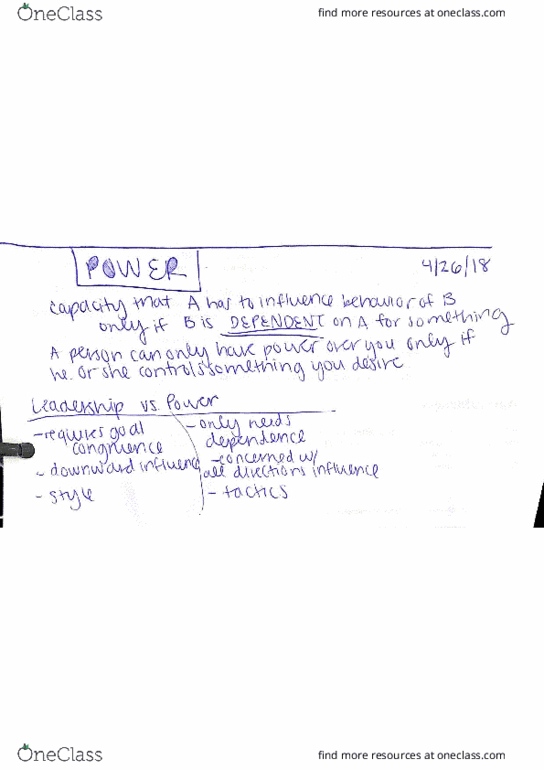 OneClass
find more resources at oneclass.com
POWER
4/26/18
capacity that A has to influence behavior of B
only if B is DEPENDENT on A for something
A person can only have power over you only if
he or she controls something you desire
Leadership vs. Power
- requires goal congruence
- downward influence
- style
- only needs dependence
- concerned w/ all directions influence
- tactics
OneClass
find more resources at oneclass.com